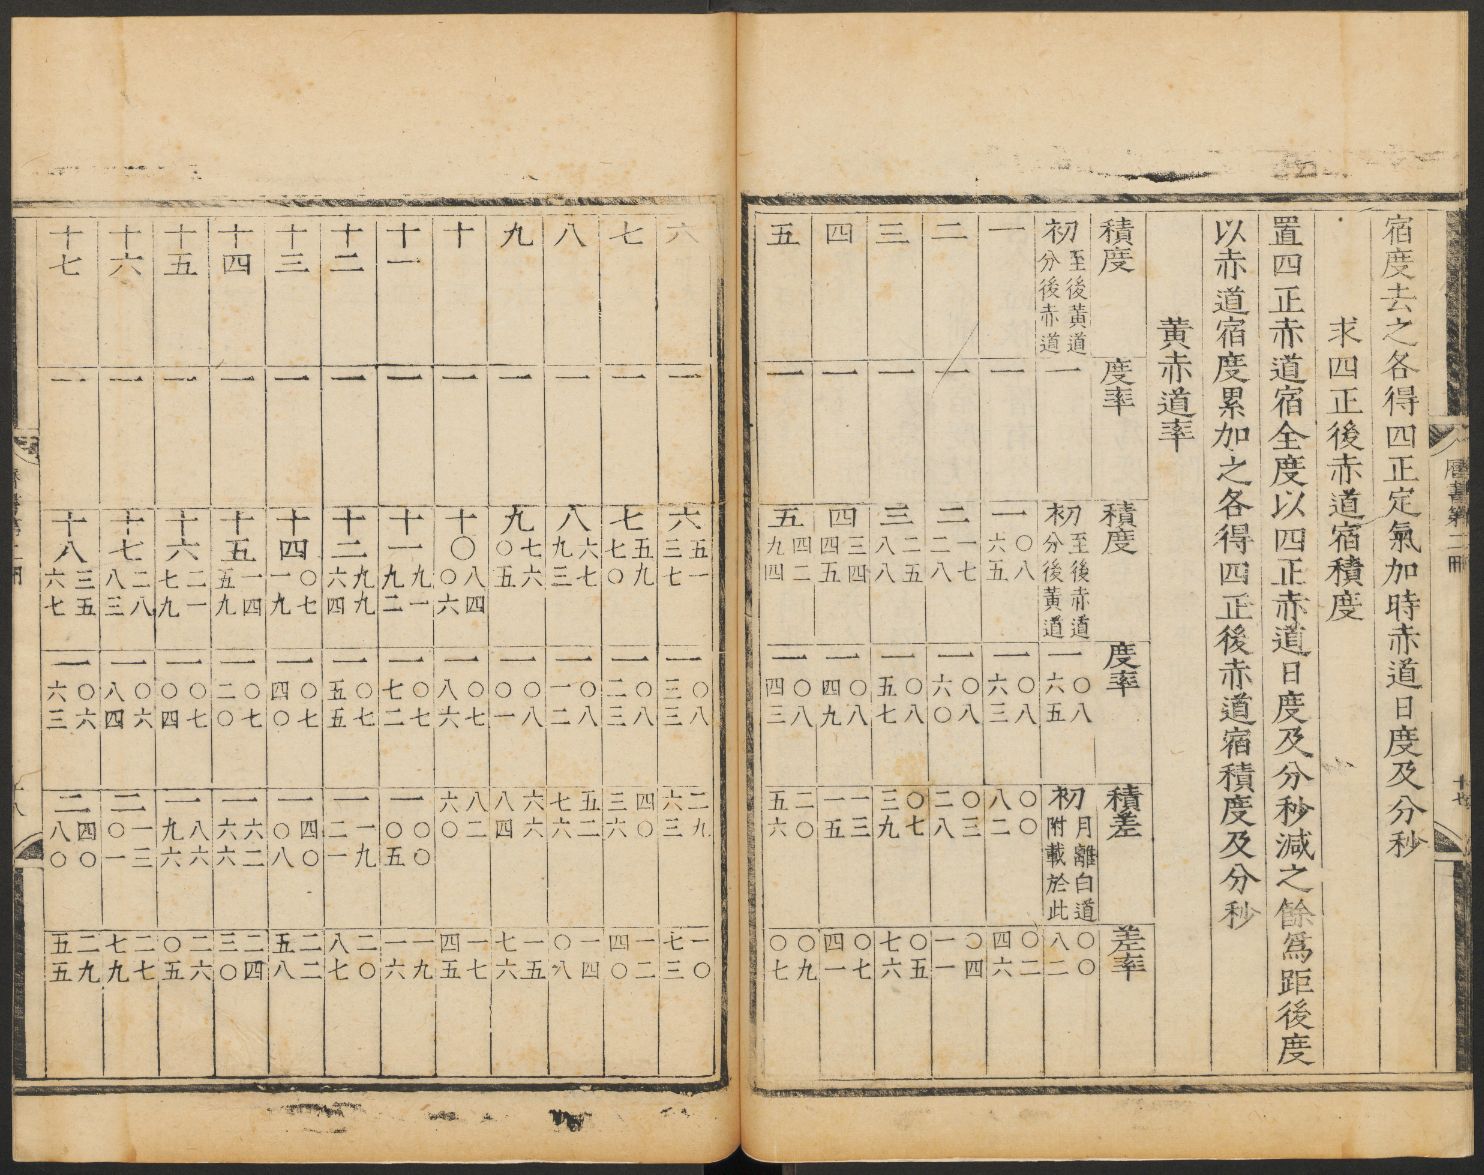 曆書第二冊
十七
宿度去之各得四正定氣加時赤道日度及分秒
求四正後赤道宿積度
置四正赤道宿全度以四正赤道日度及分秒減之餘爲距後度
以赤道宿度累加之各得四正後赤道宿積度及分秒
黃赤道率
積度 度率 積度 度率 積差 差率
初 至後黃道 分後赤道 一 初 至後赤道 分後黃道 一 〇八 六五 初 月離白道 附載於此 〇〇 八二
一 一 一 〇八 六五 一 〇八 六三 〇〇 八二 〇二 四六
二 一 二 一七 二八 一 〇八 六〇 〇三 二八 〇四 一一
三 一 三 二五 八八 一 〇八 五七 〇七 三九 〇五 七六
四 一 四 三四 四五 一 〇八 四九 一三 一五 〇七 四一
五 一 五 四二 九四 一 〇八 四三 二〇 五六 〇九 〇七
六 一 六 五一 三七 一 〇八 三三 二九 六三 一〇 七三
七 一 七 五九 七〇 一 〇八 二三 四〇 三六 一二 四〇
八 一 八 六七 九三 一 〇八 一二 五二 七六 一四 〇八
九 一 九 七六 〇五 一 〇八 〇一 六六 八四 一五 七六
十 一 十〇 八四 〇六 一 〇七 八六 八二 六〇 一七 四五
十一 一 十一 九一 九二 一 〇七 七二 一 〇〇 〇五 一九 一六
十二 一 十二 九九 六四 一 〇七 五五 一 一九 二一 二〇 八七
十三 一 十四 〇七 一九 一 〇七 四〇 一 四〇 〇八 二二 五八
十四 一 十五 一四 五九 一 〇七 二〇 一 六二 六六 二四 三〇
十五 一 十六 二一 七九 一 〇七 〇四 一 八六 九六 二六 〇五
十六 一 十七 二八 八三 一 〇六 八四 二 一三 〇一 二七 七九
十七 一 十八 三五 六七 一 〇六 六三 二 四〇 八〇 二九 五五